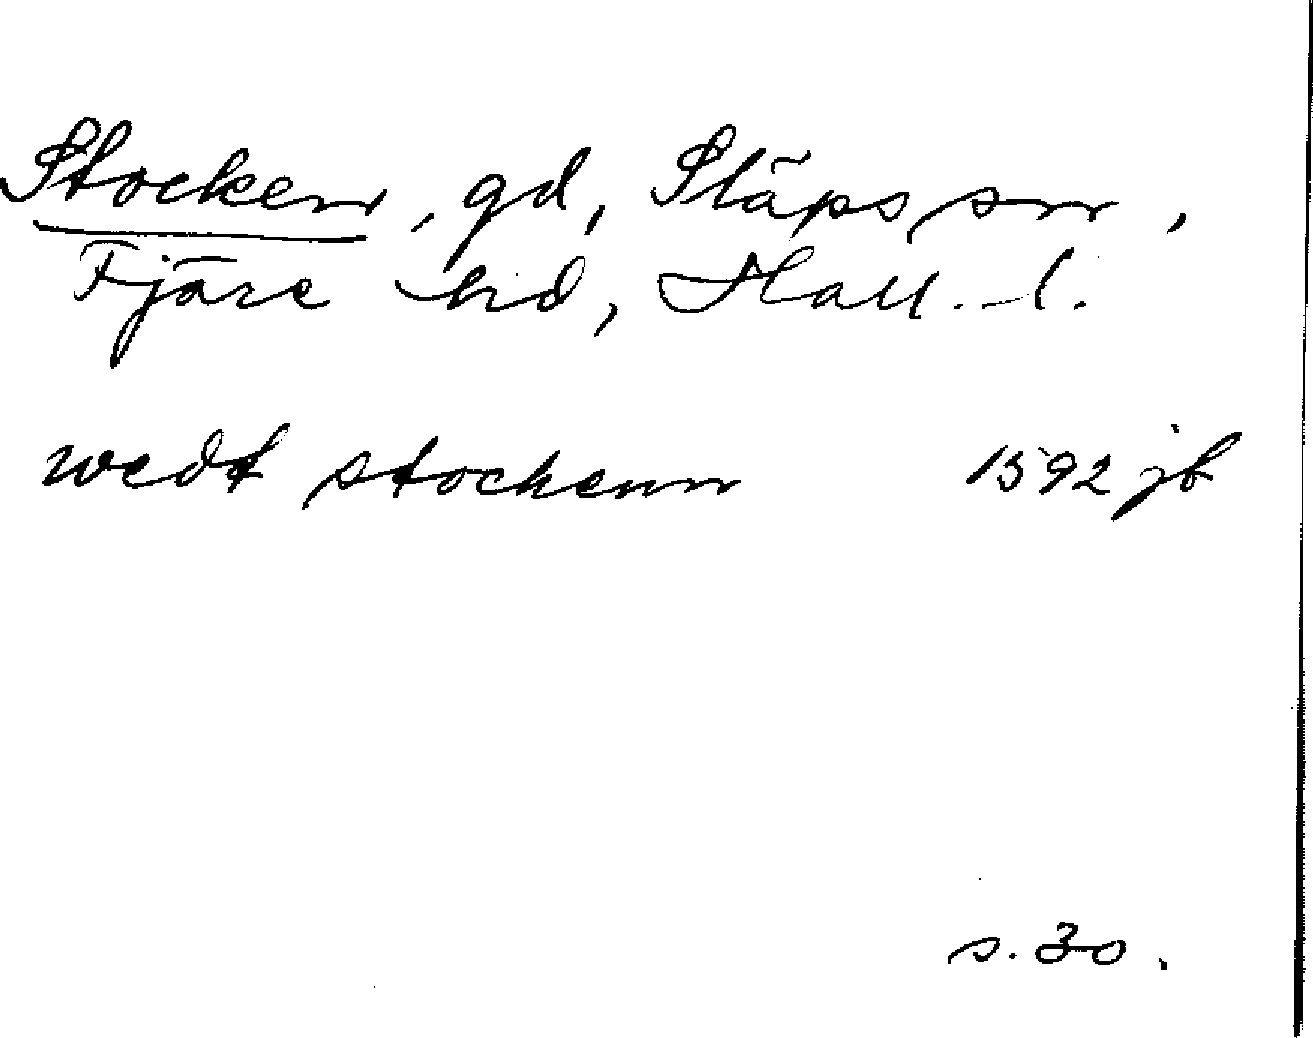 Stocken, gd, Släps sn,
Fjäre hd, Hall. l.
wedt stockenn 1592 jb
s. 30.